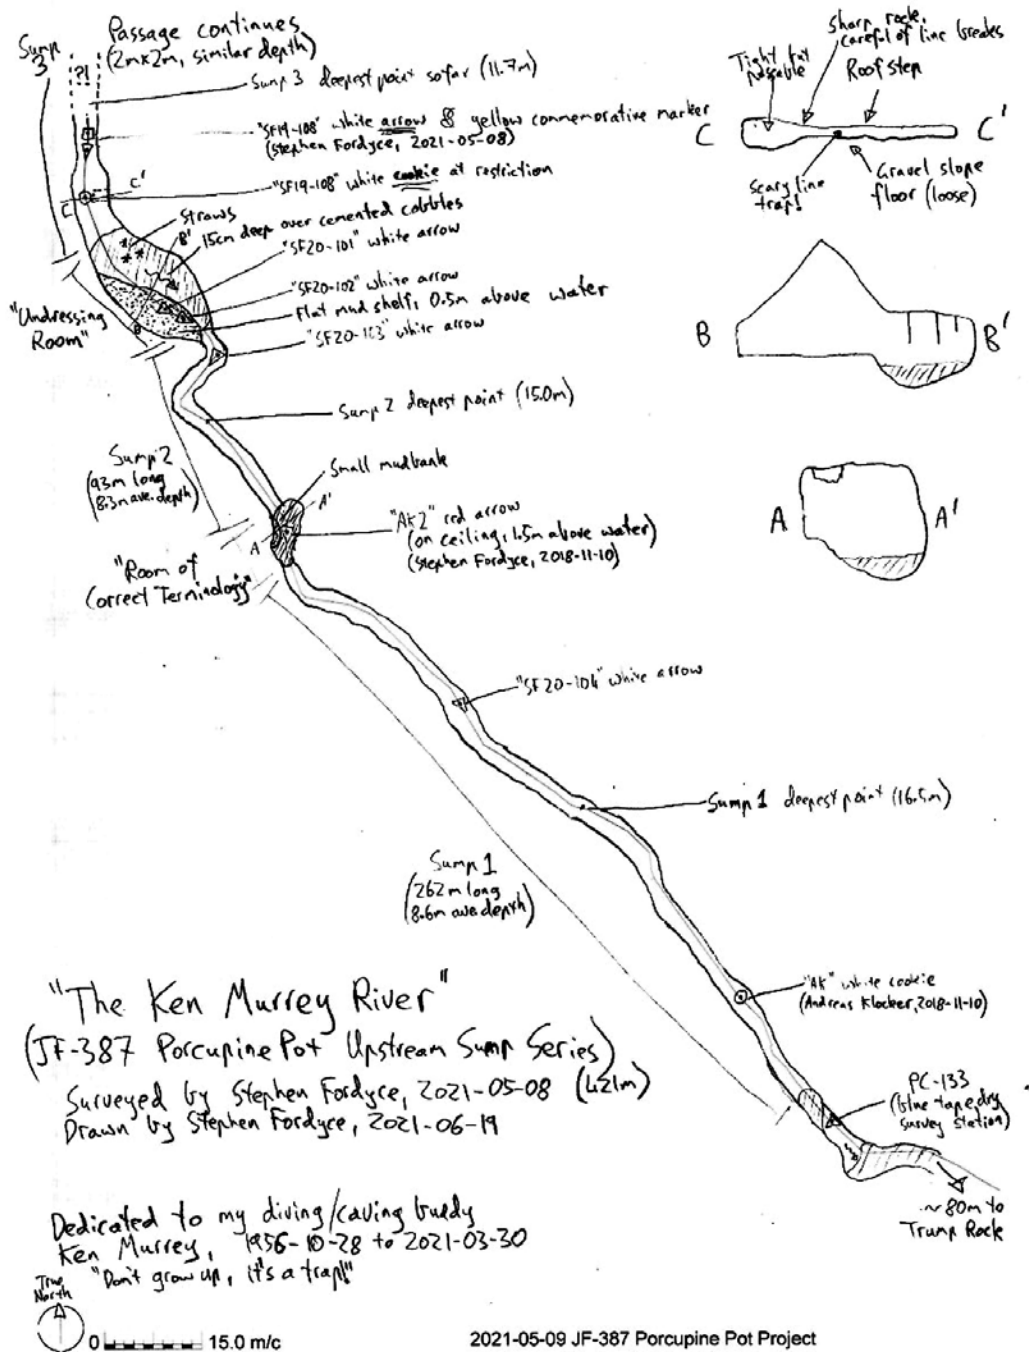 Sump
3
Passage continues
(2mx2m, similar depth)
?!
Sump 3 deepest point so far (11.7m)
"SF19-108" white arrow & yellow commemorative marker
(Stephen Fordyce, 2021-05-08)
C'
C
"SF19-108" white cookie at restriction
Straws
B'
15cm deep over cemented cobbles
"SF20-101" white arrow
"SF20-102" white arrow
Flat mud shelf, 0.5m above water
B
"SF20-103" white arrow
"Undressing
Room"
Sump 2 deepest point (15.0m)
Sump 2
(93m long
8.3m ave. depth)
Small mudbank
A'
A
"AK2" red arrow
(on ceiling, 1.5m above water)
(Stephen Fordyce, 2018-11-10)
"Room of
Correct Terminology"
"SF20-104" white arrow
Sump 1 deepest point (16.5m)
Sump 1
(262m long
8.6m ave depth)
"AK" white cookie
(Andreas Klocker, 2018-11-10)
PC-133
(blue tape, dry
survey station)
~80m to
Trump Rock
Tight but
passable
Sharp rock,
careful of line breaks
Roof step
C
C'
Scary line
trap!
Gravel slope
floor (loose)
B
B'
A
A'
"The Ken Murrey River"
(JF-387 Porcupine Pot Upstream Sump Series)
Surveyed by Stephen Fordyce, 2021-05-08 (421m)
Drawn by Stephen Fordyce, 2021-06-19
Dedicated to my diving/caving buddy
Ken Murrey, 1956-10-28 to 2021-03-30
"Don't grow up, it's a trap!"
True
North
0 15.0 m/c
2021-05-09 JF-387 Porcupine Pot Project